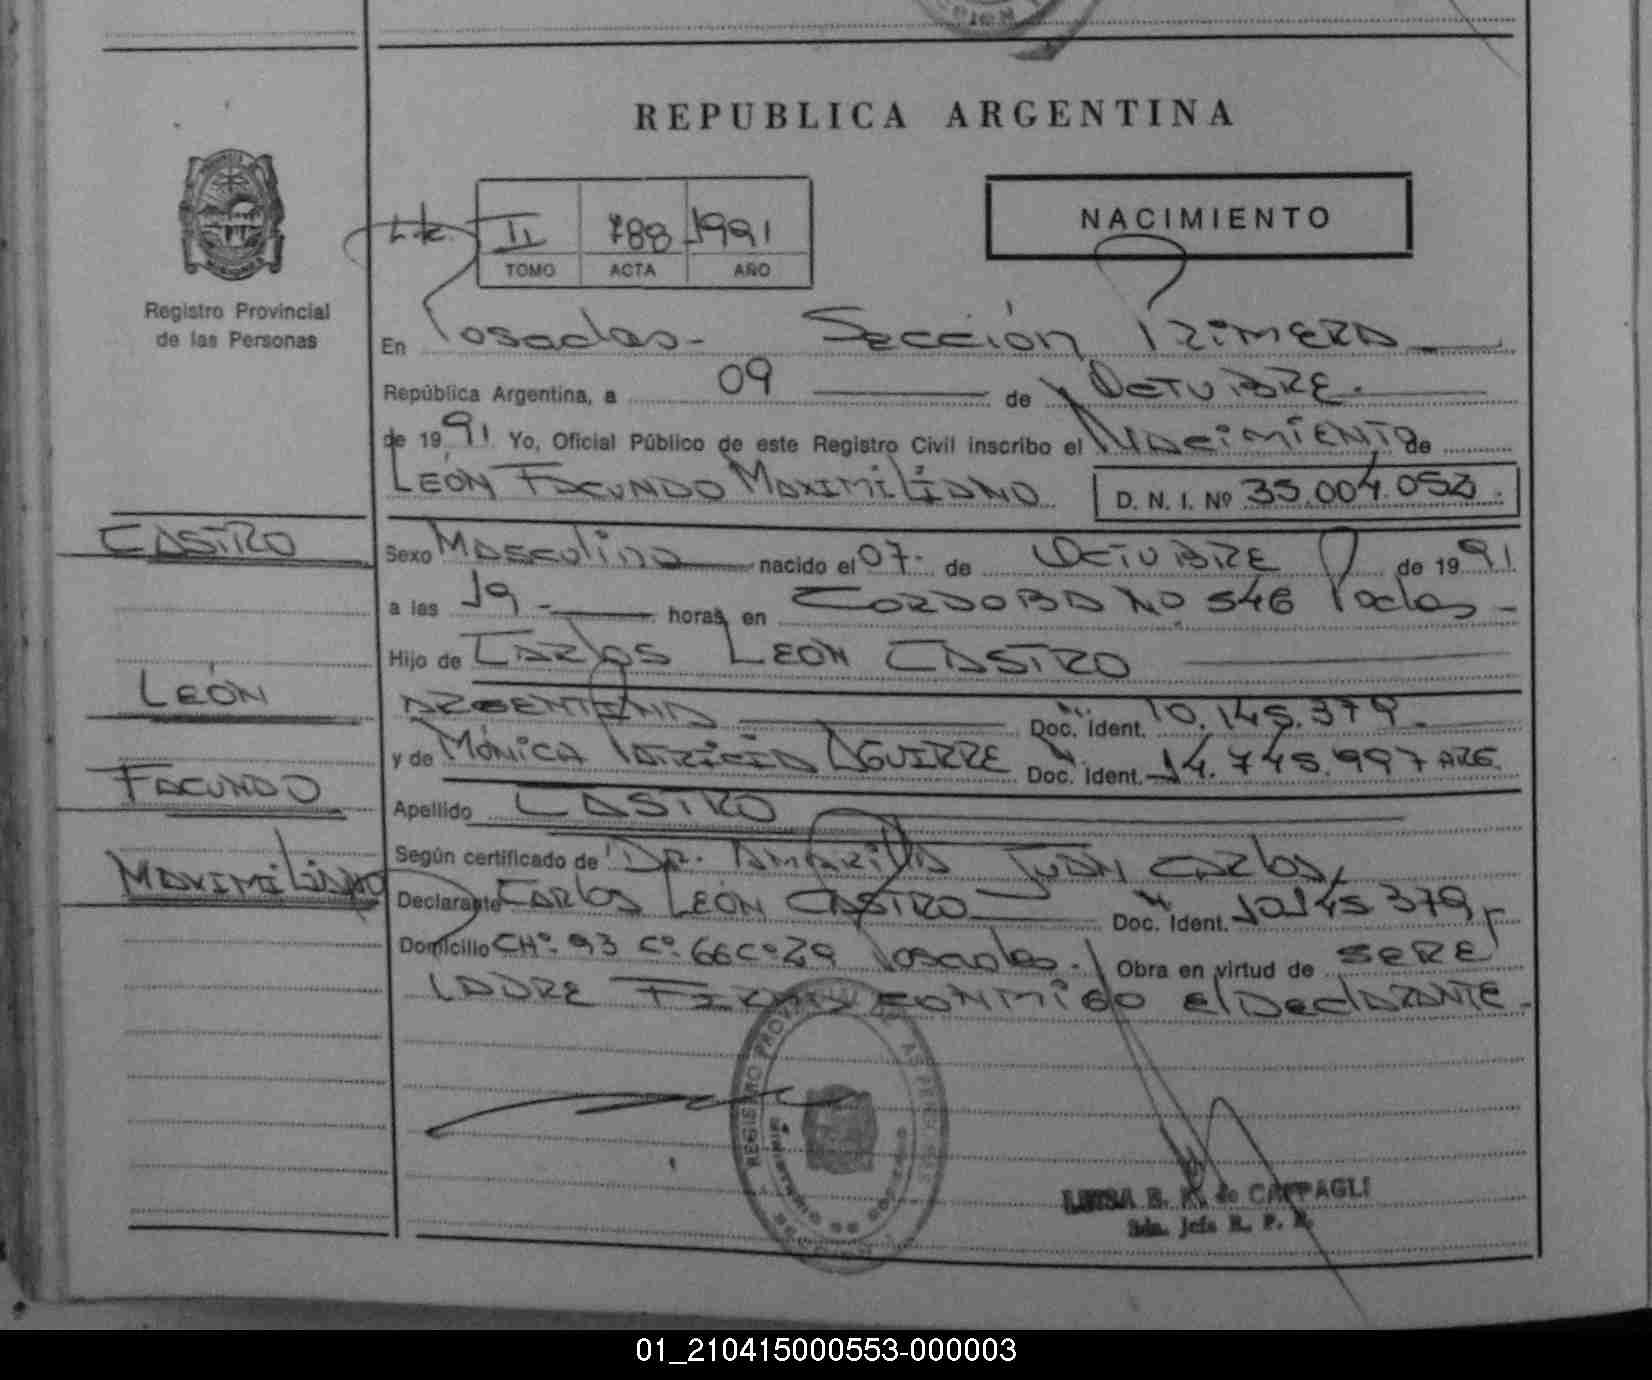 REPUBLICA ARGENTINA
NACIMIENTO
II 788 1991
TOMO ACTA AÑO
Registro Provincial
de las Personas
En Posadas - Sección Primera
República Argentina, a 09 de Octubre.
de 1991 Yo, Oficial Público de este Registro Civil inscribo el Nacimiento de
León Facundo Maximiliano D. N. I. Nº 35.004.052.
CASTRO
Sexo Masculino nacido el 07. de Octubre de 1991
a las 19 - horas en CORDOBA NO 546 Podas -
Hijo de Carlos León CASTRO
LEÓN
ARGENTINA Doc. Ident. 10.145.379.
y de Mónica Patricia AGUIRRE Doc. Ident. 14.745.997 ARG.
FACUNDO
Apellido CASTRO
Según certificado de Dr. Amarilla Juan Carlos,
MAXIMILIANO
Declarante Carlos León CASTRO Doc. Ident. 10145379,
Domicilio CHº. 93 Cº. 66 Cº 29 Posadas. Obra en virtud de SERE
PADRE Firma conmigo el Declarante.
REGISTRO PROVINCIAL DE LAS PERSONAS
LUISA B. de CAPPAGLI
Jefa R. P. P.
01_210415000553-000003